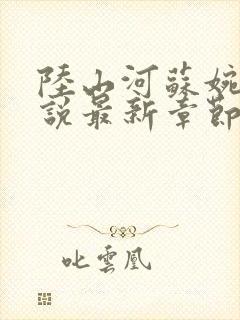 陸山河蘇婉
說最新章節
叱雲凰